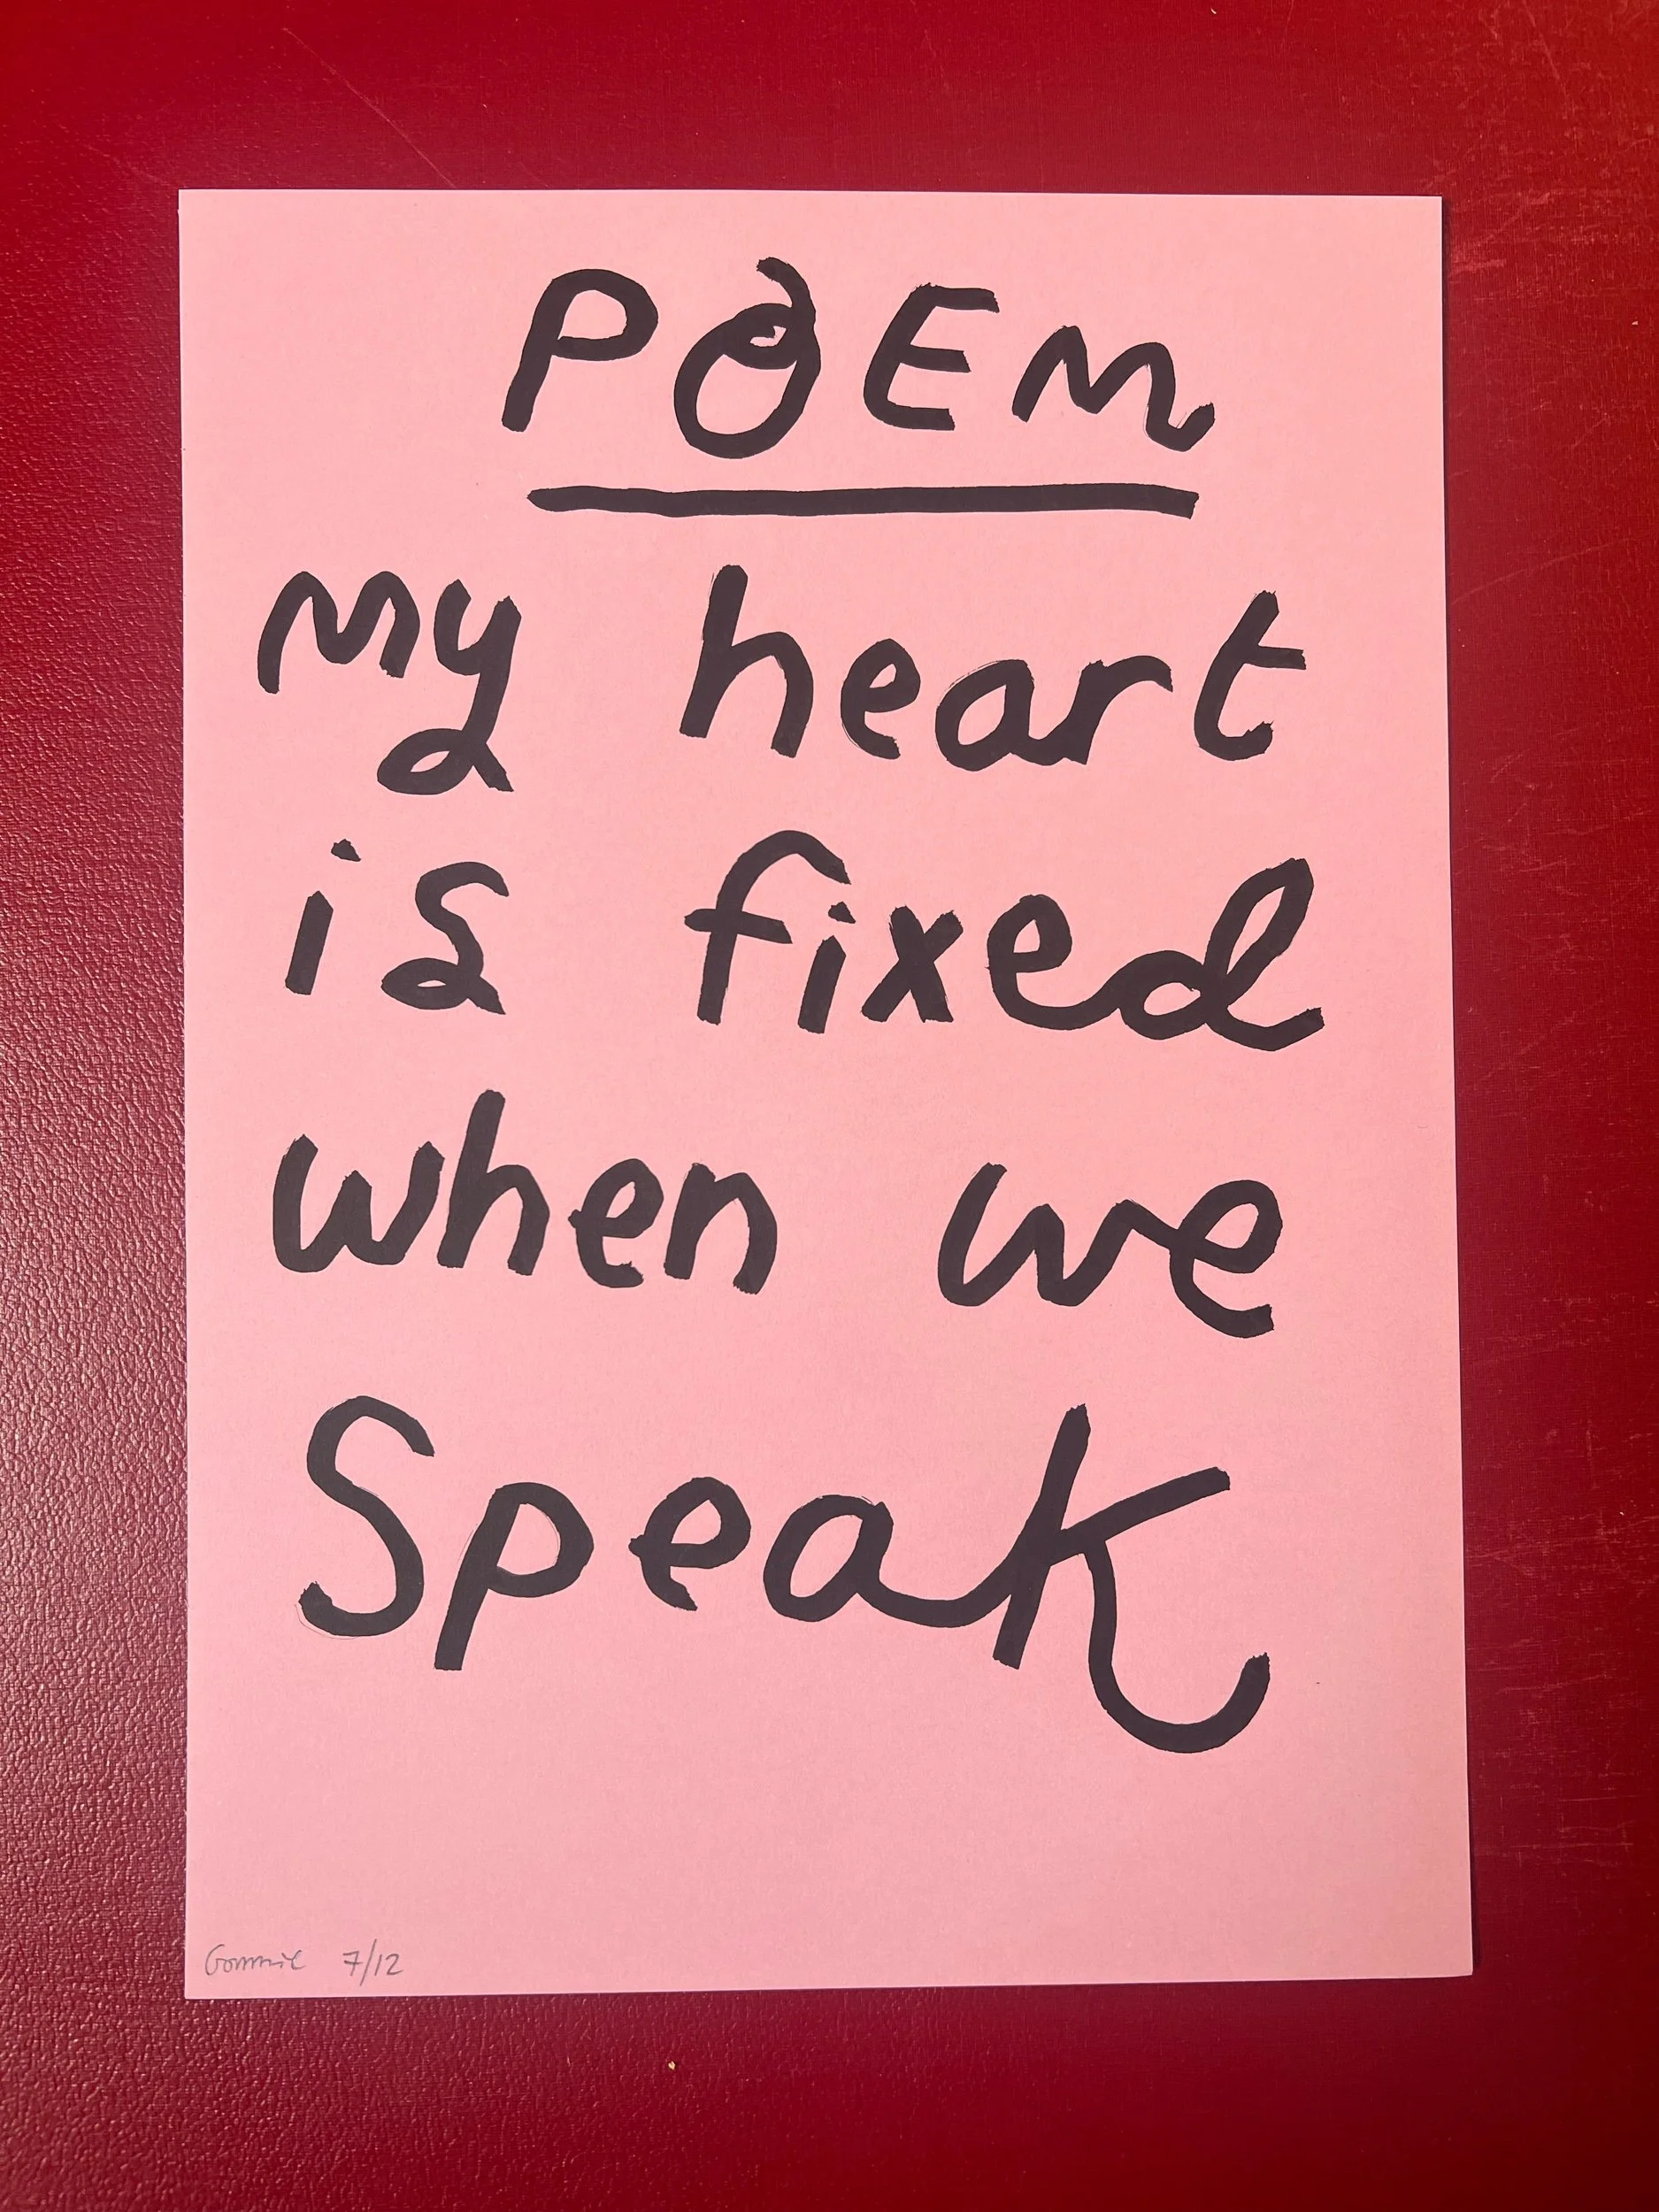 POEM
my heart
is fixed
when we
Speak
Gommie 7/12